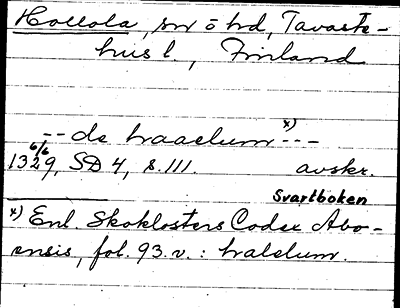 Hollola, sn o hd, Tavaste-
hus l., Finland
-- de haaelum x) --
6/6
1329, SD 4, s. 111. avskr.
Svartboken
x) Enl. Skoklosters Codex Abo-
ensis, fol. 93. v. : halelum.